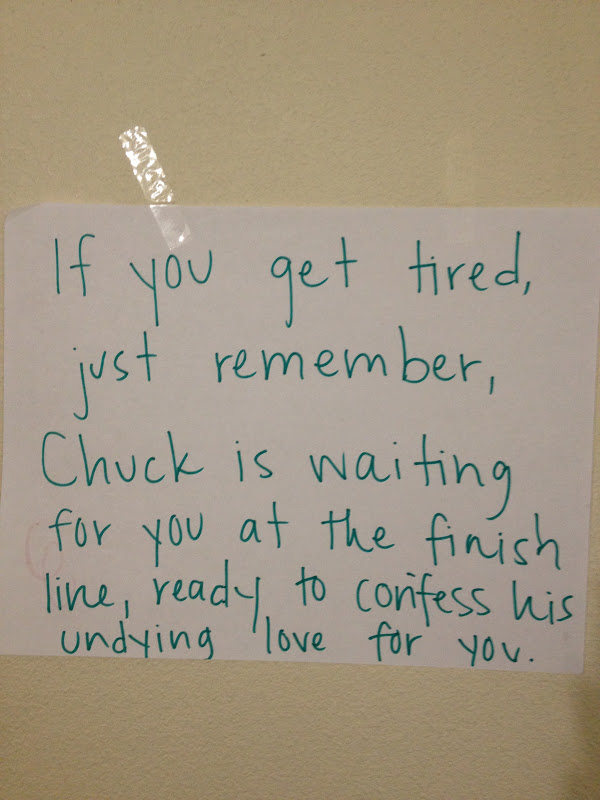 If you get tired,
just remember,
Chuck is waiting
for you at the finish
line, ready to confess his
undying love for you.